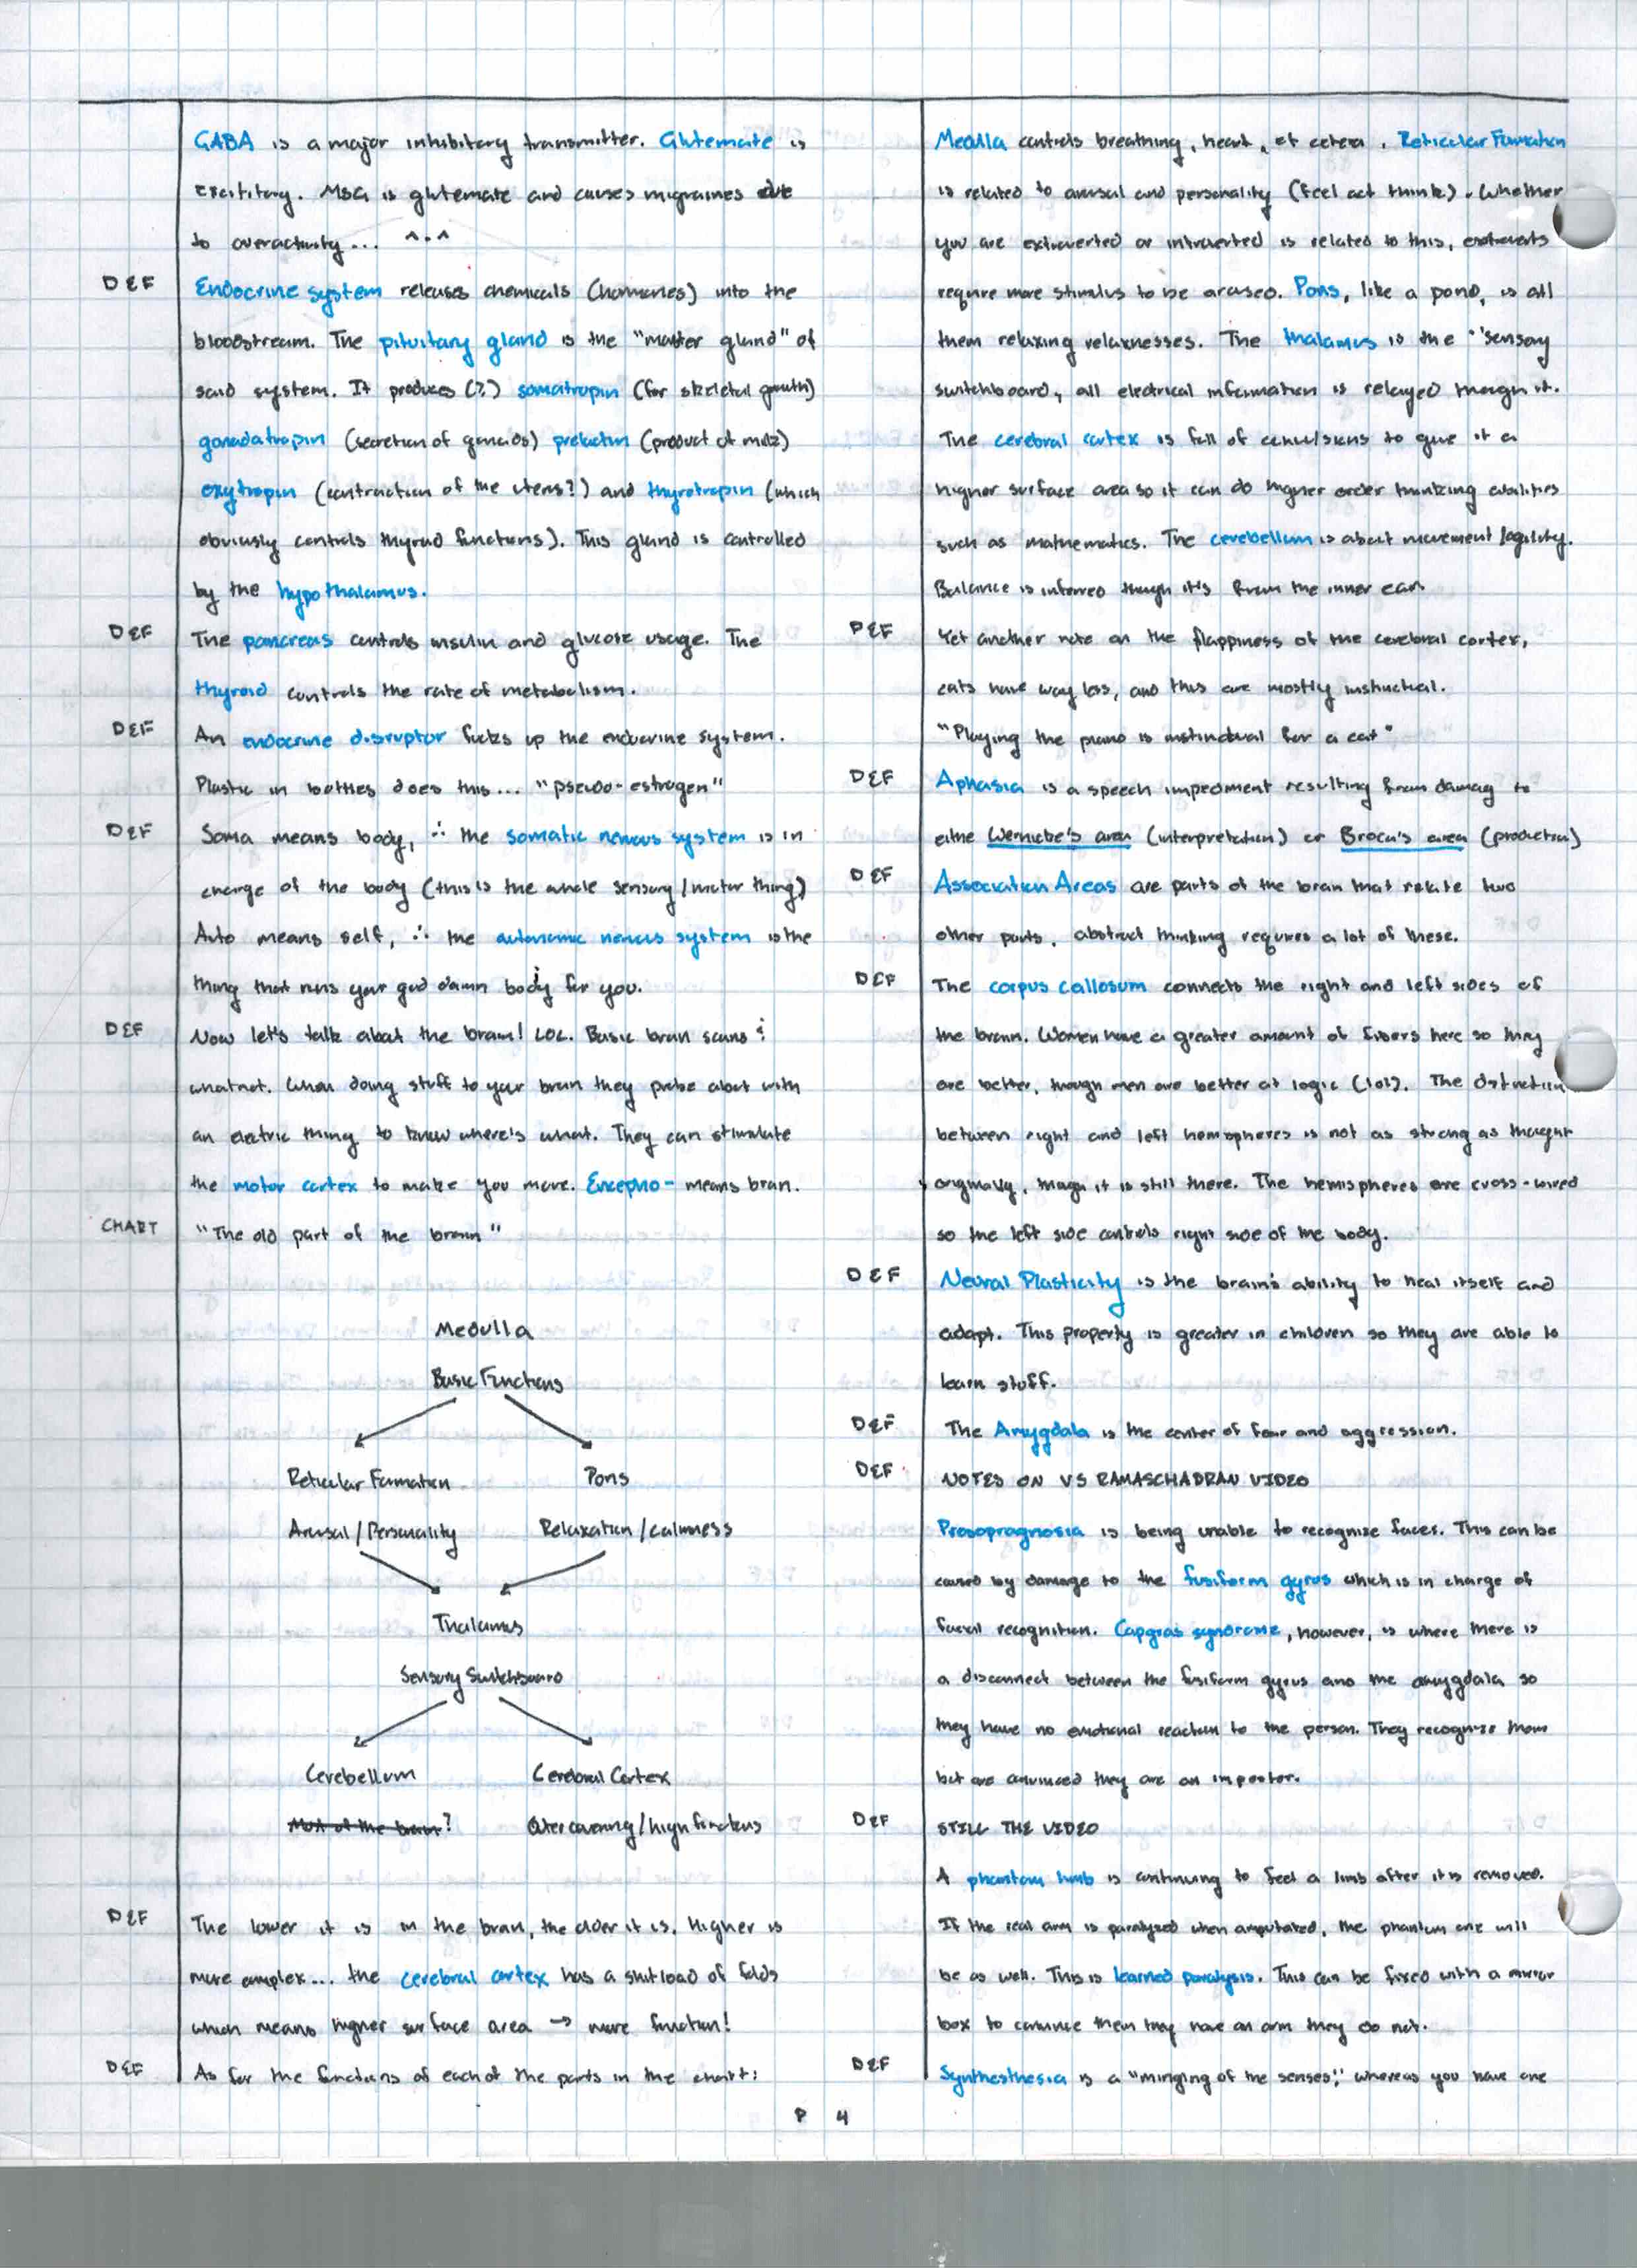 GABA is a major inhibitory transmitter. Glutemate is
excititory. MSG is glutemate and causes migraines due
to overactivity... ^.^
DEF
Endocrine system releases chemicals (hormones) into the
bloodstream. The pituitary gland is the "master gland" of
said system. It produces (?) somatropin (for skeletal growth)
gonadatropin (secretion of gonads) prolactin (product of milk)
oxytropin (contraction of the uterus?) and thyrotropin (which
obviously controls thyroid functions). This gland is controlled
by the hypothalamus.
DEF
The pancreas controls insulin and glucose usage. The
thyroid controls the rate of metabolism.
DEF
An endocrine disruptor fucks up the endocrine system.
Plastic in bottles does this... "pseudo-estrogen"
DEF
Soma means body, ∴ the somatic nervous system is in
charge of the body (this is the whole sensory/motor thing)
Auto means self, ∴ the autonomic nervous system is the
thing that runs your god damn body for you.
DEF
Now let's talk about the brain! LOL. Basic brain scans &
whatnot. When doing stuff to your brain they probe about with
an electric thing to know where's what. They can stimulate
the motor cortex to make you move. Encepho- means brain.
CHART
"The old part of the brain"
Medulla
Basic Functions
Reticular Formation Pons
Arousal/Personality Relaxation/calmness
Thalamus
Sensory Switchboard
Cerebellum Cerebral Cortex
Most of the brain? Outer covering/high functions
DEF
The lower it is in the brain, the older it is. Higher is
more complex... the cerebral cortex has a shitload of folds
which means higher surface area → more function!
DEF
As for the functions of each of the parts in the chart:
Medulla controls breathing, heart, et cetera. Reticular Formation
is related to arousal and personality (feel act think). Whether
you are extroverted or introverted is related to this, extroverts
require more stimulus to be aroused. Pons, like a pond, is all
them relaxing relaxnesses. The thalamus is the "sensory
switchboard, all electrical information is relayed through it.
The cerebral cortex is full of convulsions to give it a
higher surface area so it can do higher order thinking abilities
such as mathematics. The cerebellum is about movement/agility.
Balance is inferred though it's from the inner ear.
DEF
Yet another note on the flappiness of the cerebral cortex,
cats have way less, and thus are mostly instinctual.
"Playing the piano is instinctual for a cat"
DEF
Aphasia is a speech impediment resulting from damag to
eithe Wernicke's area (interpretation) or Broca's area (production)
DEF
Association Areas are parts of the brain that relate two
other parts, abstract thinking requires a lot of these.
DEF
The corpus callosum connects the right and left sides of
the brain. Women have a greater amount of fibers here so they
are better, though men are better at logic (lol). The distinction
between right and left hemispheres is not as strong as thought
originally, though it is still there. The hemispheres are cross-wired
so the left side controls right side of the body.
DEF
Neural Plasticity is the brain's ability to heal itself and
adapt. This property is greater in children so they are able to
learn stuff.
DEF
The Amygdala is the center of fear and aggression.
DEF
NOTES ON VS RAMASCHADRAN VIDEO
Prosopragnosia is being unable to recognize faces. This can be
caused by damage to the fusiform gyrus which is in charge of
facial recognition. Capgras syndrome, however, is where there is
a disconnect between the fusiform gyrus and the amygdala so
they have no emotional reaction to the person. They recognize them
but are convinced they are an impostor.
DEF
STILL THE VIDEO
A phantom limb is continuing to feel a limb after it is removed.
If the real arm is paralyzed when amputated, the phantom one will
be as well. This is learned paralysis. This can be fixed with a mirror
box to convince them they have an arm they do not.
DEF
Synthesthesia is a "minging of the senses;" whereas you have one
P 4